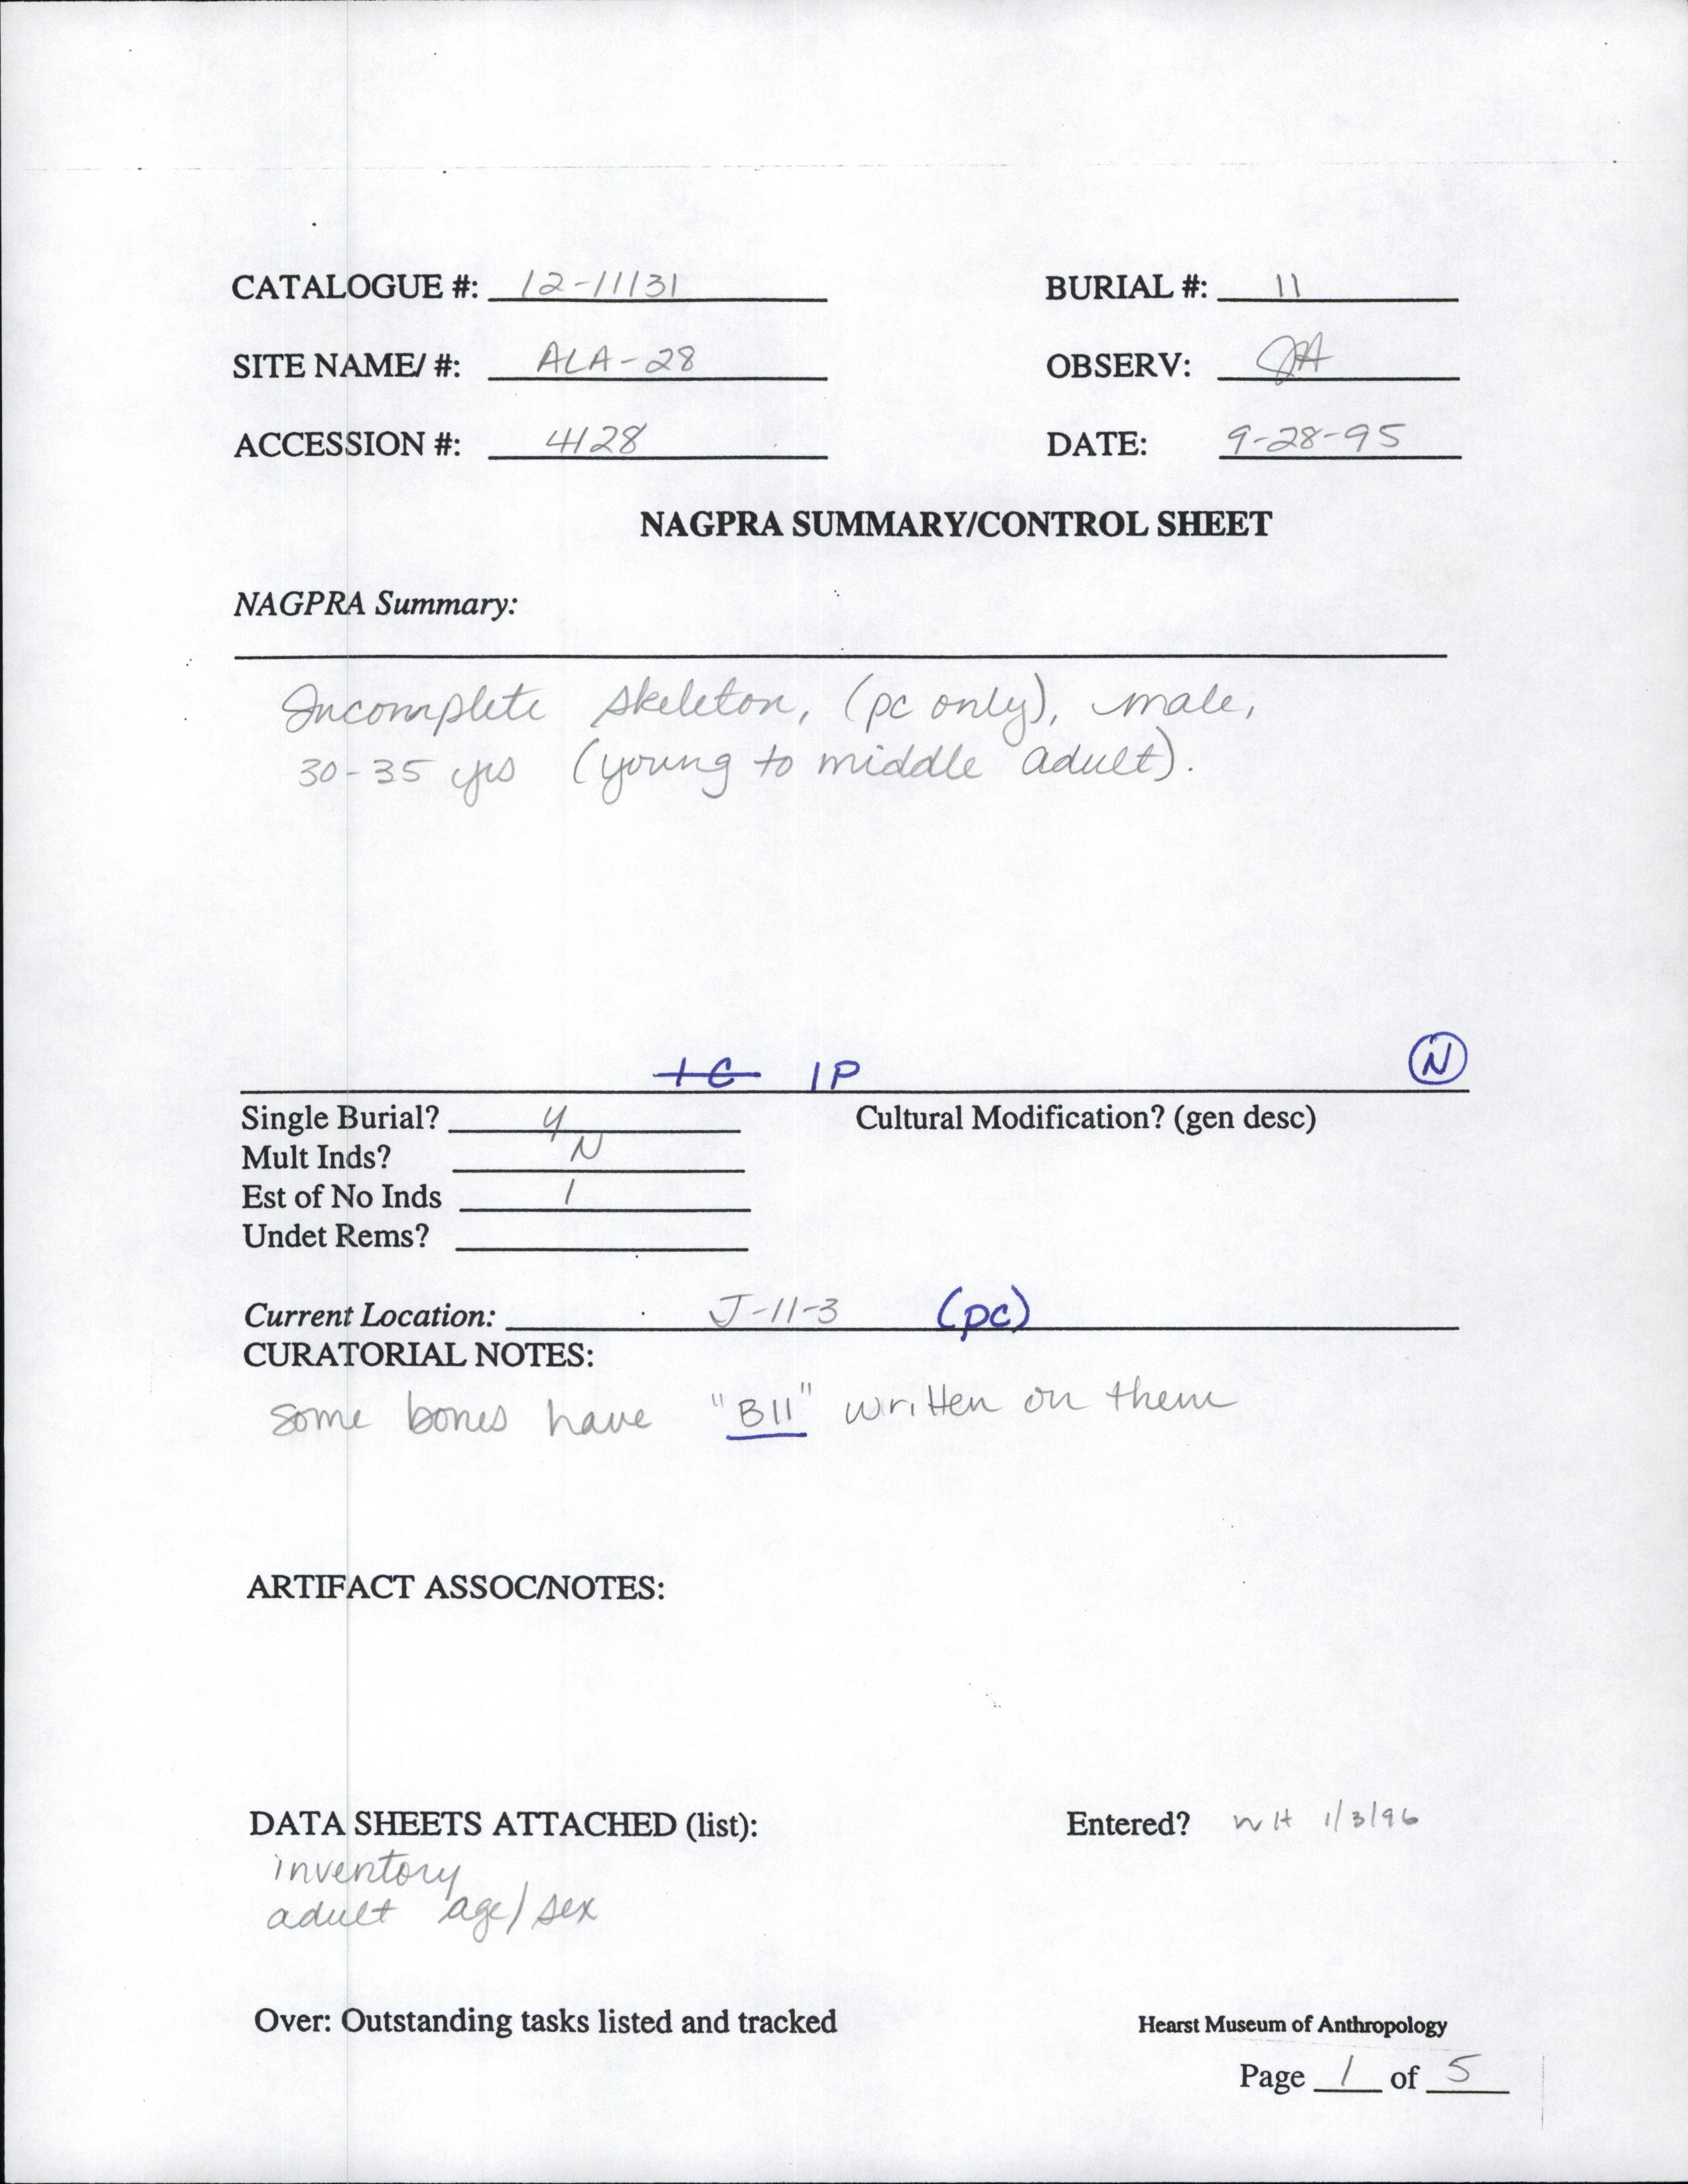 CATALOGUE #: 12-11131 BURIAL #: 11
SITE NAME/ #: ALA-28 OBSERV: JA
ACCESSION #: 4128 DATE: 9-28-95
NAGPRA SUMMARY/CONTROL SHEET
NAGPRA Summary:
Incomplete skeleton, (pc only), male,
30-35 yrs (young to middle adult).
1C 1P N
Single Burial? y Cultural Modification? (gen desc)
Mult Inds? N
Est of No Inds 1
Undet Rems?
Current Location: J-11-3 (pc)
CURATORIAL NOTES:
some bones have "B11" written on them
ARTIFACT ASSOC/NOTES:
DATA SHEETS ATTACHED (list): Entered? WH 1/3/96
inventory
adult age/sex
Over: Outstanding tasks listed and tracked
Hearst Museum of Anthropology
Page 1 of 5